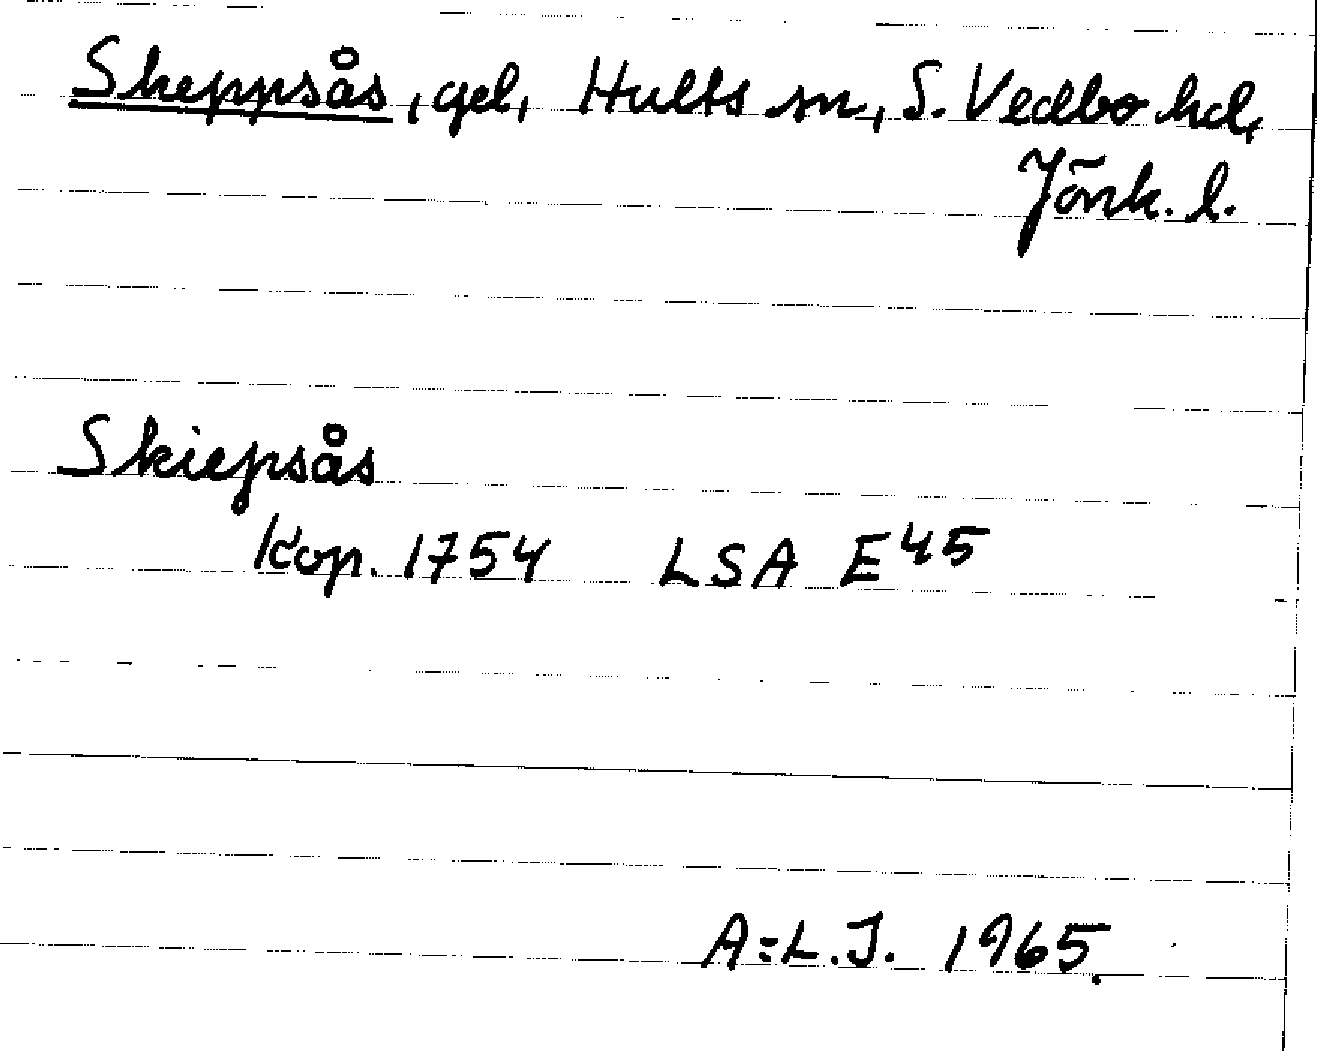 Skeppsås, gd, Hults sn, S. Vedbo hd,
Jönk. l.
Skiepsås
Kop. 1754 LSA E45
A:L.J. 1965.